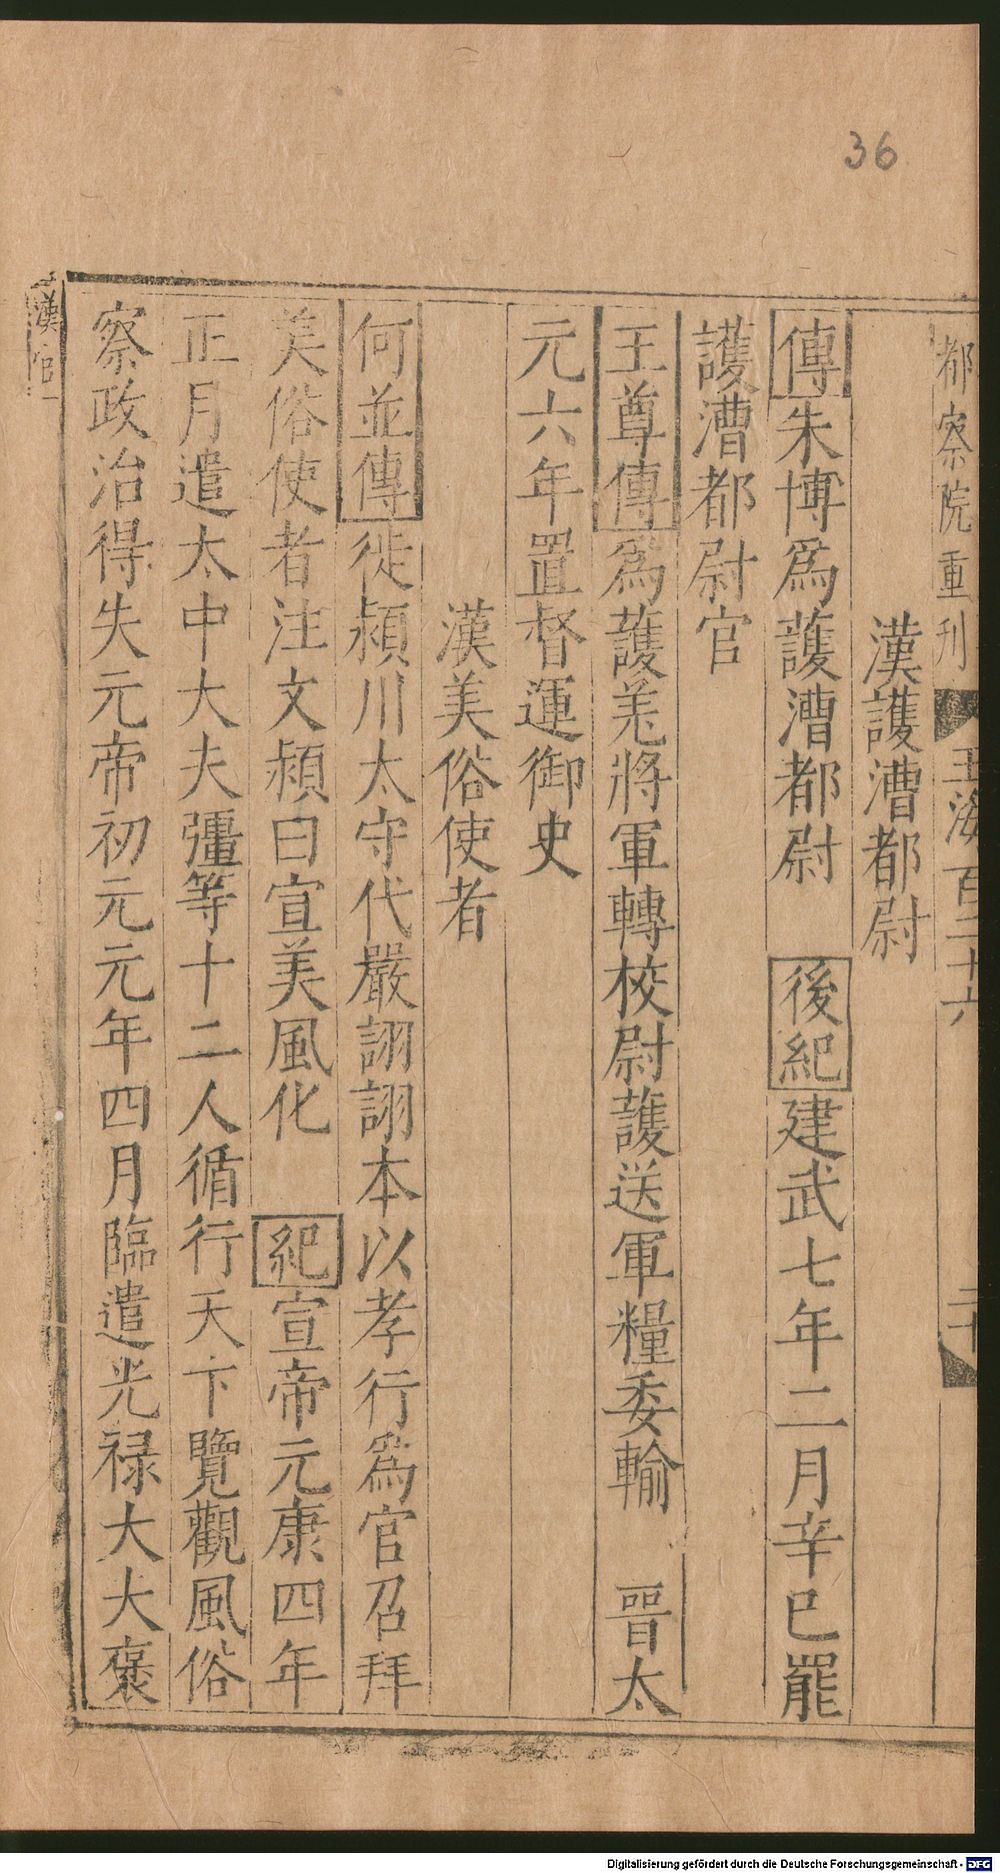 36
都察院重刊 玉海百二十六 二十
漢護漕都尉
傳朱博爲護漕都尉 後紀建武七年二月辛巳罷
護漕都尉官
王尊傳爲護羌將軍轉校尉護送軍糧委輸 晉太
元六年置督運御史
漢美俗使者
何並傳徙潁川太守代嚴詡詡本以孝行爲官召拜
美俗使者注文潁曰宣美風化 紀宣帝元康四年
正月遣太中大夫彊等十二人循行天下覽觀風俗
察政治得失元帝初元元年四月臨遣光禄大大褒
漢官
Digitalisierung gefördert durch die Deutsche Forschungsgemeinschaft - DFG